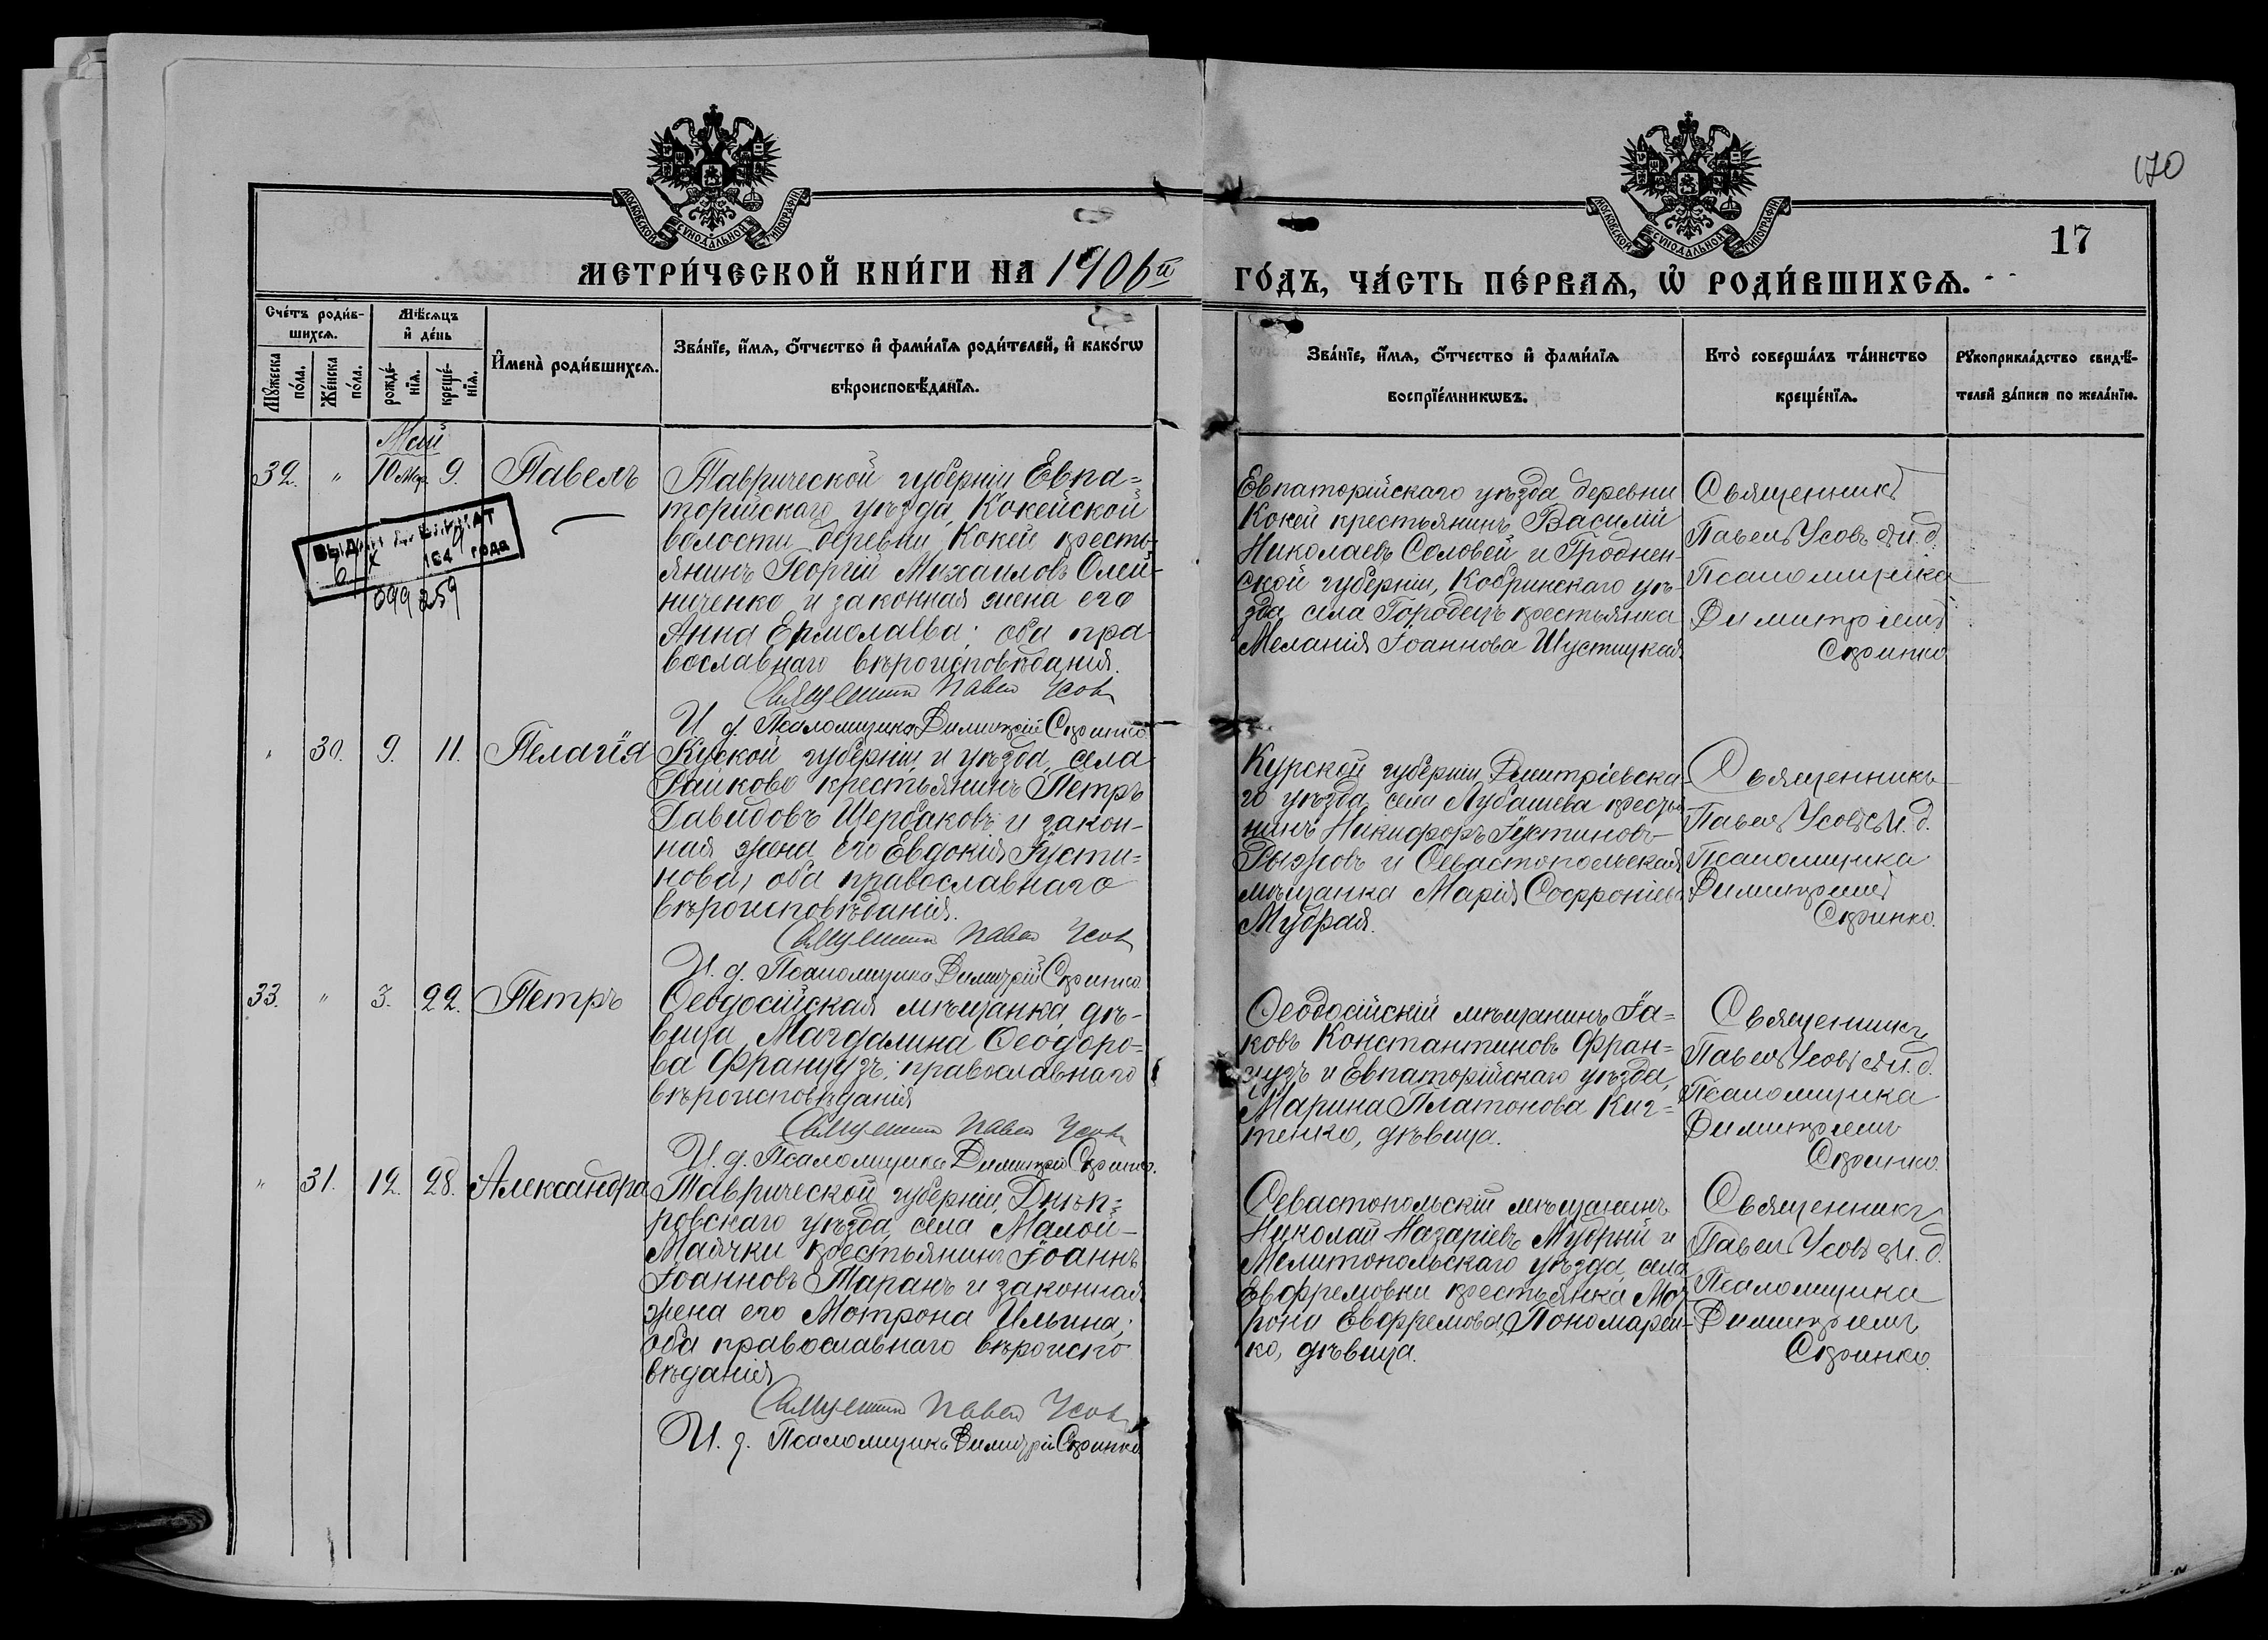 170
МОСКОВСКОЙ СѴНОДАЛЬНОЙ ТИПОГРАФІИ
МОСКОВСКОЙ СѴНОДАЛЬНОЙ ТИПОГРАФІИ
17
МЕТРИ́ЧЕСКОЙ КНИ́ГИ НА 1906й
ГО́ДЪ, ЧА́СТЬ ПЕ́РВАѦ, Ѡ҆ РОДИ́ВШИХСѦ.
Сче́тъ роди́в-
шихсѧ.
Мꙋ́жеска по́ла.
Же́нска по́ла.
Мѣ́сѧцъ
и҆ де́нь
рожде́-
нїѧ.
креще́-
нїѧ.
И҆мена̀ роди́вшихсѧ.
Зва́нїе, и҆́мѧ, ѻ҆́тчество и҆ фами́лїѧ роди́телей, и҆ како́гѡ
вѣроисповѣ́данїѧ.
Зва́нїе, и҆́мѧ, ѻ҆́тчество и҆ фами́лїѧ
воспрїе́мникѡвъ.
Кто̀ соверша́лъ та́инство
креще́нїѧ.
Рꙋкоприкла́дство свидѣ́-
телей за́писи по жела́нїю.
Май
32. " 10 Мар. 9. Павелъ
Таврической губерніи Евпа=
торійскаго уѣзда, Кокейской
волости деревни Кокей кресть-
янинъ Георгій Михаиловъ Олей-
ниченко и законная жена его
Анна Ермолаева; оба пра-
вославнаго вѣроисповѣданія.
Священник Павел Усов
И. д. Псаломщика Димитрій
Евпаторійскаго уѣзда деревни
Кокей крестьянинъ Василій
Николаевъ Соловей и Гроднен-
ской губерніи, Кобринскаго уѣ-
зда села Городецъ крестьянка
Меланія Іоаннова Шустицкая.
Священникъ
Павелъ Усовъ съ И. д.
Псаломщика
Димитріемъ
года
099259
" 30. 9. 11. Пелагія
Курской губерніи и уѣзда, села
крестьянинъ Петръ
Давидовъ Щербаковъ и закон-
ная жена его Евдокія Іусти-
нова, оба православнаго
вѣроисповѣданія.
Священник Павел Усов
И. д. Псаломщика Димитрій
Курской губерніи Дмитріевска-
го уѣзда, села Лубашева крестья-
нинъ Никифоръ Іустиновъ
Рыжовъ и Севастопольская
мѣщанка Марія Софроніева
Мудрая.
Священникъ
Павелъ Усовъ съ И. д.
Псаломщика
Димитріемъ
33. " 3. 22. Петръ
Ѳеодосійская мѣщанка, дѣ-
вица Магдалина Ѳеодоро-
ва Французъ; православнаго
вѣроисповѣданія
Священник Павел Усов
И. д. Псаломщика Димитрій
Ѳеодосійскій мѣщанинъ Іа=
ковъ Константиновъ Фран=
цузъ и Евпаторійскаго уѣзда,
Марина Платонова
дѣвица.
Священникъ
Павелъ Усовъ съ И. д.
Псаломщика
Димитріемъ
" 31. 12. 28. Александра
Таврической губерніи, Днѣп=
ровскаго уѣзда, села Малой-
Маячки крестьянинъ Іоаннъ
Іоанновъ Таранъ и законная
жена его Мотрона Ильина;
оба православнаго вѣроиспо
вѣданія
Священник Павел Усов
И. д. Псаломщика Димитрій
Севастопольскій мѣщанинъ
Николай Назаріевъ Мудрый и
Мелитопольскаго уѣзда, села
Евфремовки крестьянка Мот
рона Евфремова Пономарен-
ко, дѣвица.
Священникъ
Павелъ Усовъ съ И. д.
Псаломщика
Димитріемъ